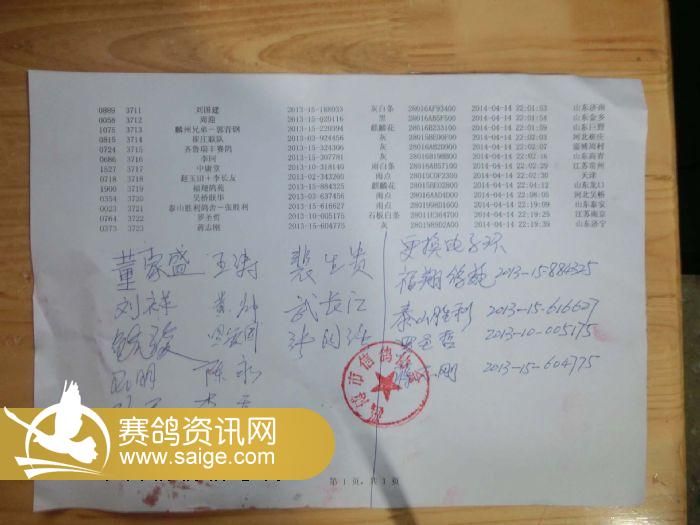 0889 3711 刘国建 2013-15-188033 灰白条 28016AF93400 2014-04-14 22:01:53 山东济南
0058 3712 周迎 2013-15-020116 黑 28016AB5F500 2014-04-14 22:01:54 山东金乡
1075 3713 麟州兄弟-郭首钢 2013-15-220394 麒麟花 28016B233100 2014-04-14 22:01:59 山东巨野
0815 3714 崔庄联队 2013-03-924456 灰 28015BE90F00 2014-04-14 22:02:03 河北蔡庄
0724 3715 齐鲁瑞丰赛鸽 2013-15-324306 灰 28016AB90B00 2014-04-14 22:02:07 淄博周村
0686 3716 李珂 2013-15-307781 灰 28016B19BB00 2014-04-14 22:02:16 山东高青
1527 3717 中庸堂 2013-10-318144 雨白条 28016AB57100 2014-04-14 22:02:29 江苏常州
0718 3718 赵玉田+李长友 2013-02-343260 雨点 28015C0F2300 2014-04-14 22:02:30 天津
1900 3719 福翔鸽苑 2013-15-884325 麒麟花 28015BE02800 2014-04-14 22:04:12 山东龙口
0354 3720 吴桥献华 2013-03-657463 雨点 28016AA04400 2014-04-14 22:04:08 河北吴桥
0023 3721 泰山胜利鸽舍-张胜利 2013-15-616627 雨点 2801998D1600 2014-04-14 22:19:09 山东泰安
0764 3722 罗圣哲 2013-10-005175 石板白条 28011F364700 2014-04-14 22:19:39 江苏南京
0373 3723 蒋志刚 2013-15-604775 灰 2801989D2A00 2014-04-14 22:19:25 山东济宁
董家盛 王涛 裴生贵 更换电子环
福翔鸽苑 2013-15-884325
刘祥 武长江 泰山胜利 2013-15-616627
罗圣哲 2013-10-005175
陈永 蒋志刚 2013-15-604775
市信鸽协会
第 1 页，共 3 页
赛鸽资讯网
www.saige.com